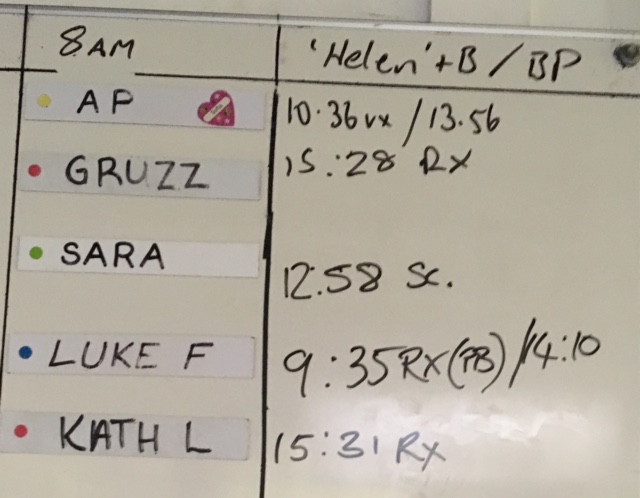 8AM 'Helen' + B / BP
AP 10.36 vx / 13.56
GRUZZ 15:28 Rx
SARA 12:58 Sc.
LUKE F 9:35 RX (PB) / 14:10
KATH L 15:31 Rx